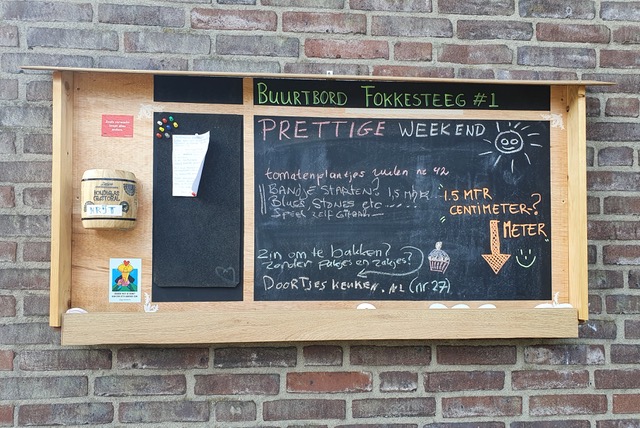 BUURTBORD FOKKESTEEG #1
PRETTIGE WEEKEND
tomatenplantjes ruilen nr 42
BANDJE STARTEN? 1,5 mtr
BLUES, STONES etc .....
SPEEL ZELF GITAAR
1.5 MTR
CENTIMETER?
METER
Zin om te bakken?
zonder pakjes en zakjes?
DOORTJESKEUKEN.NL (nr 27)